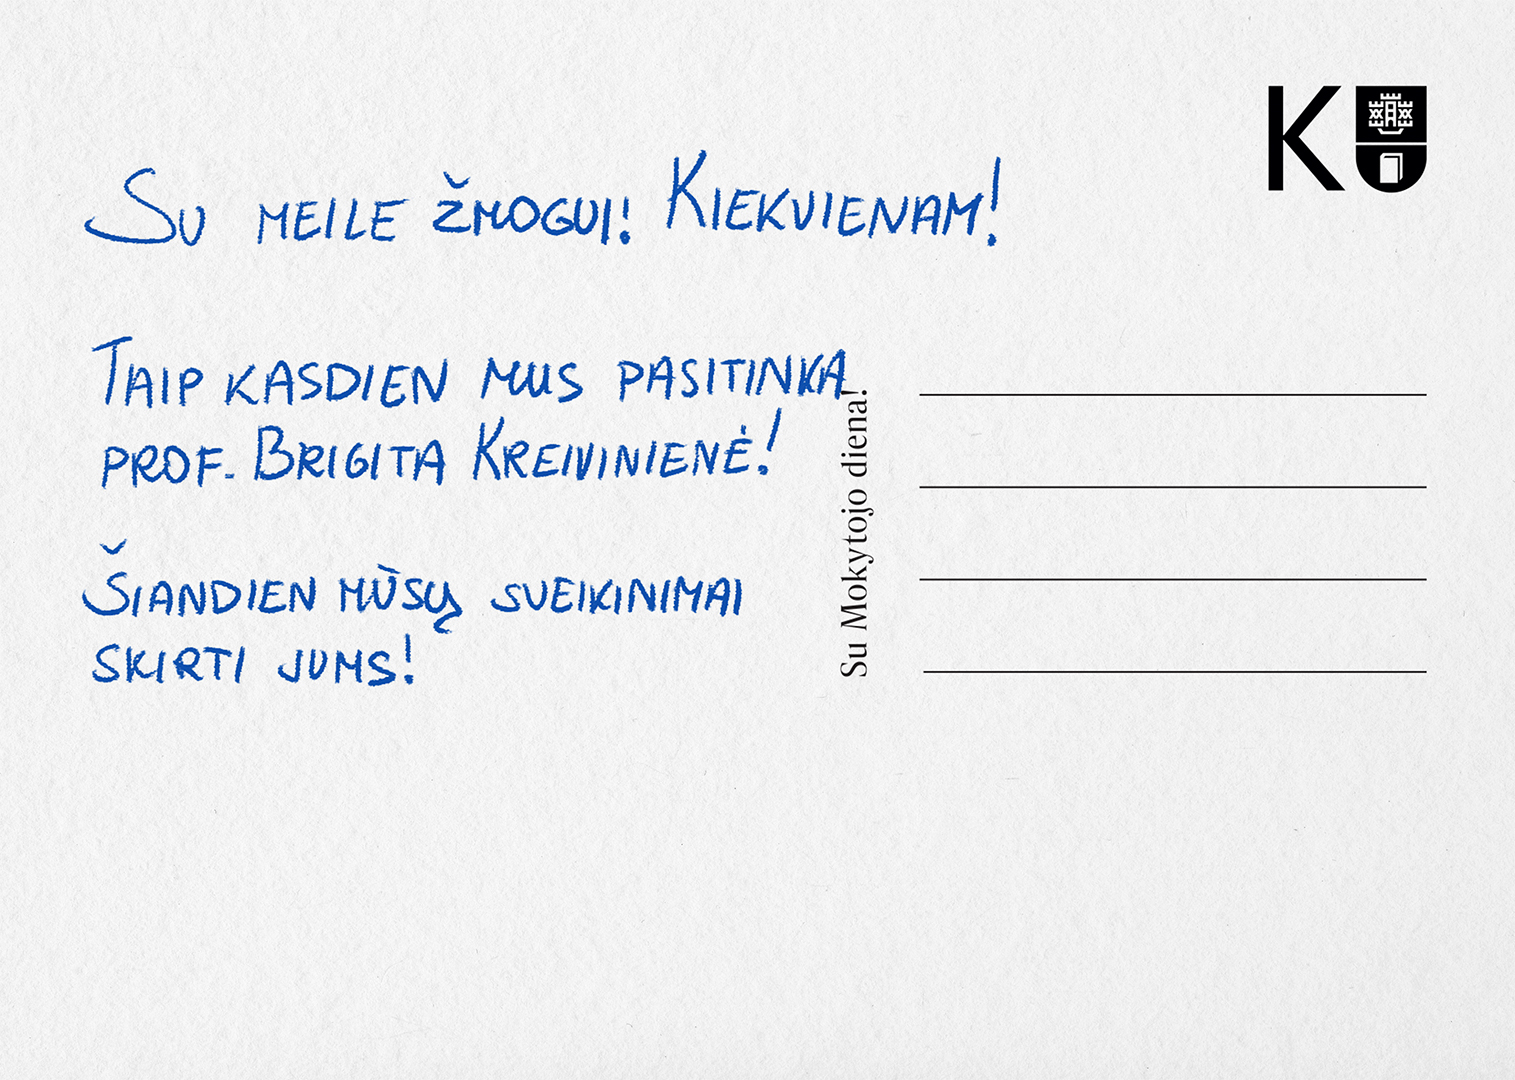 KU
Su meile žmogui! Kiekvienam!
Taip kasdien mus pasitinka
prof. Brigita Kreivinienė!
Šiandien mūsų sveikinimai
skirti jums!
Su Mokytojo diena!